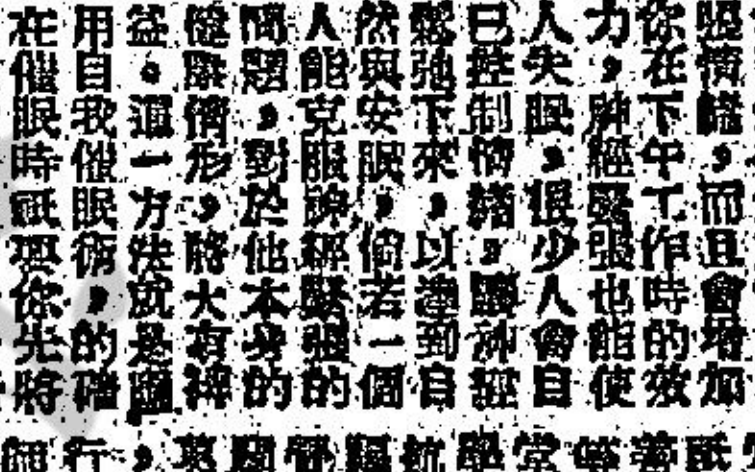 情緒，而且會增加
你在下午工作時的效
力，神經緊張也能使
人失眠，很少人會自
已控制情緒，讓神經
鬆弛下來，以達到自
然與安眠，倘若一個
人能克服神經緊張的
問題，對於他本身的
健康情形，將大有裨
益。這一方法就是
用自我催眠術，的確
在催眠時祇要你先將